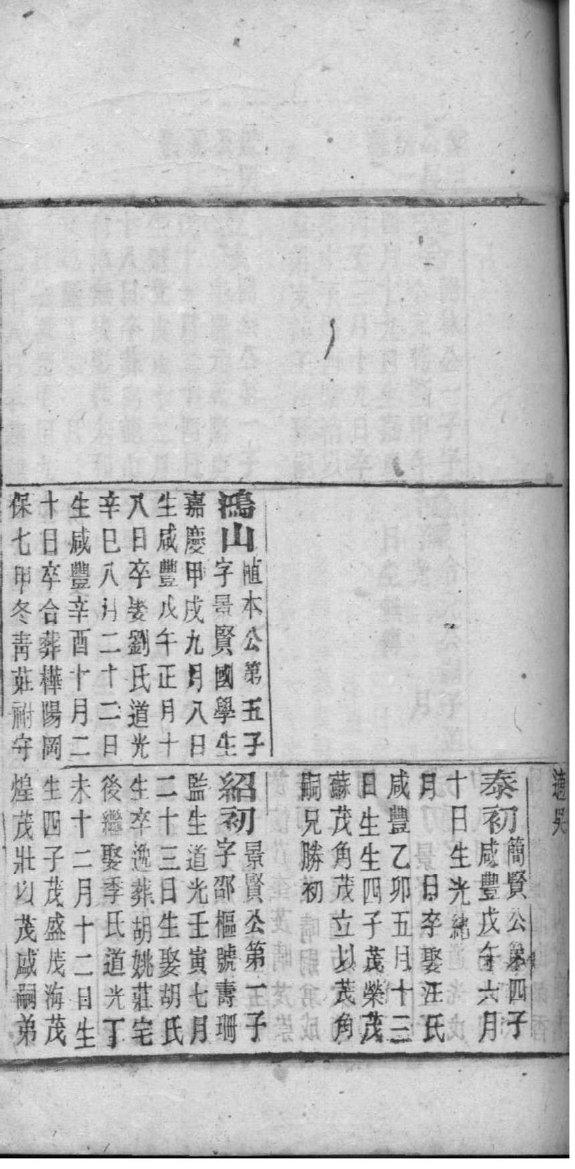 適吳
泰初簡賢公第四子
咸豐戊午六月
十日生光緒
月　日卒娶汪氏
咸豐乙卯五月十三
日生生四子茂榮茂
蘇茂角茂立以茂角
嗣兄勝初
鴻山植本公第五子
字景賢國學生
嘉慶甲戌九月八日
生咸豐戊午正月十
八日卒娶劉氏道光
辛巳八月二十二日
生咸豐辛酉十月二
十日卒合葬樺陽岡
保七甲冬青莊祔守
紹初景賢公第一子
字邵樞號壽珊
監生道光壬寅七月
二十三日生娶胡氏
生卒逸葬胡姚莊宅
後繼娶李氏道光丁
未十二月十二日生
生四子茂盛茂海茂
煌茂壯以茂咸嗣弟